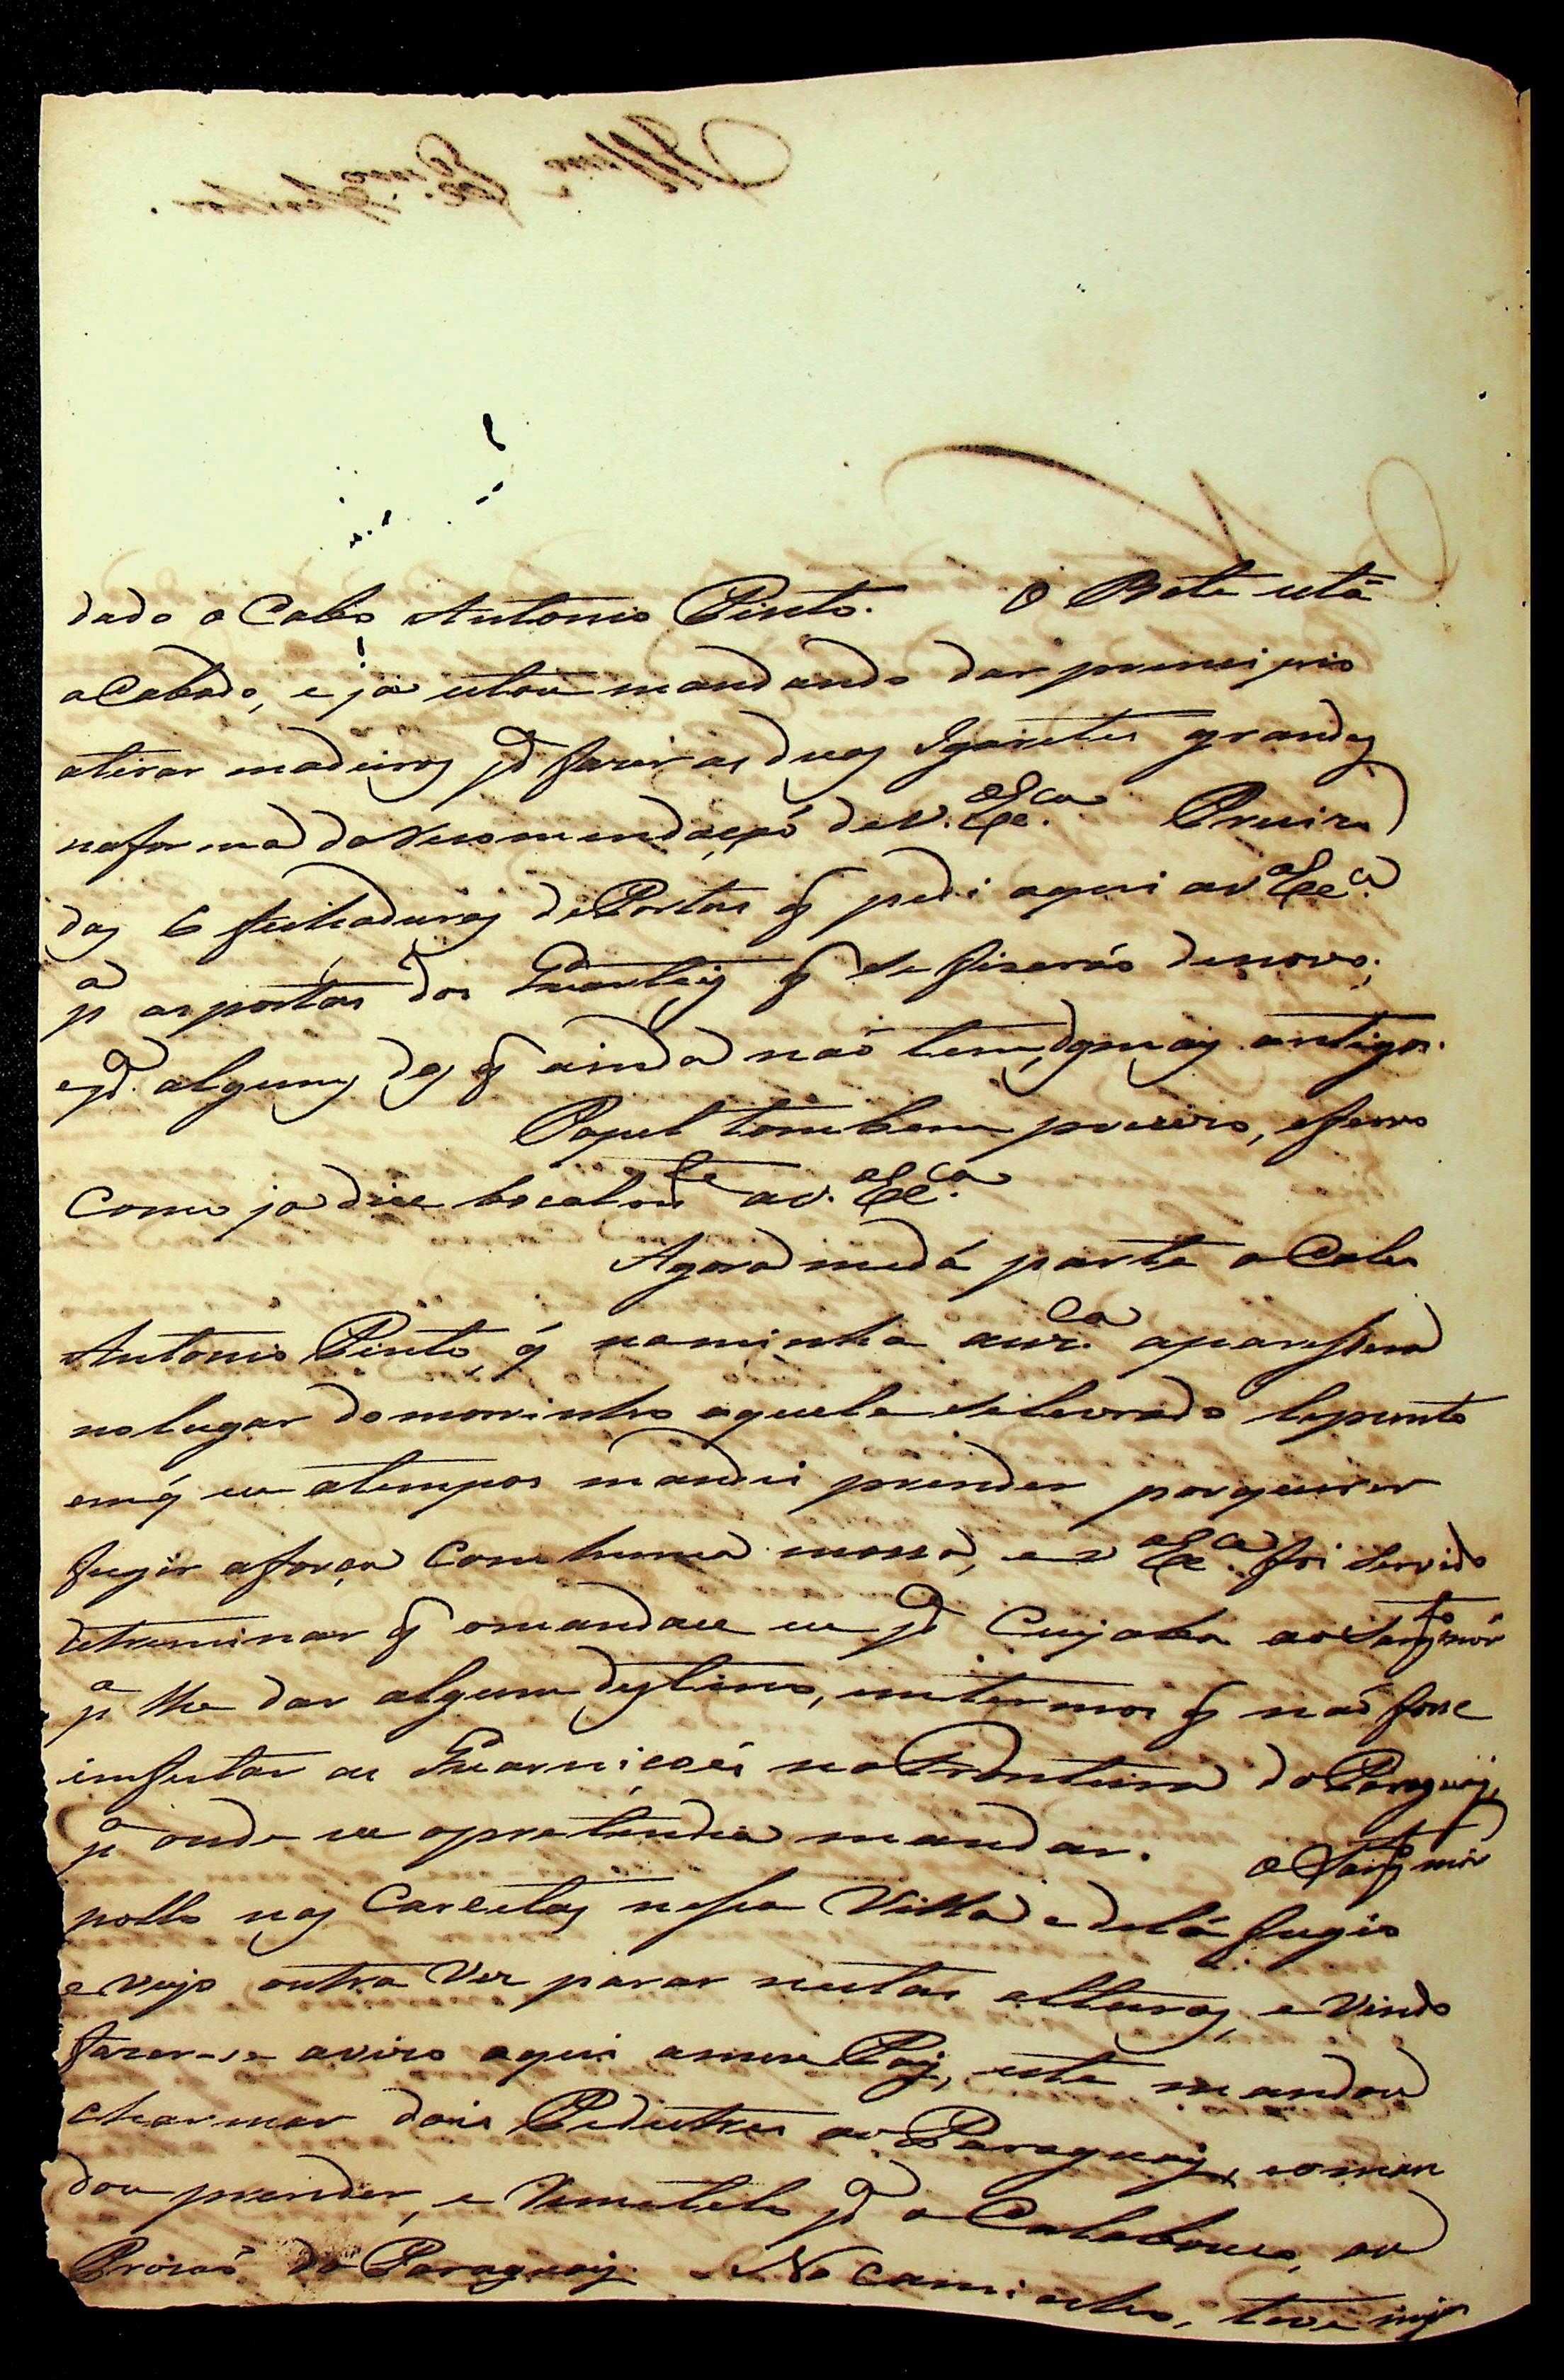 dado o Cabo Antonio Pinto. O Bote está
acabado, e já estou mandando dar principio
atirar madeiras pa. fazer as duas Igarites grandes
na forma da recomendaçaõ de V. Exca. Preciza
das 6 fechaduras de Portas q pedi aqui a V Exca.
pa as portas dos Quarteis q se fizeraõ denovo;
epa. algumas das q ainda naõ tem, das mais antigas.
Papel tambem precizo, e ferro
como ja dice bocalmte a V. Exca.
Agora me dá parte o Cabo
Antonio Pinto, q na minha auzca. aparessera
no lugar do morrinho aquele
em q eu atempos mandei prender por querer
fugir aforça com huma mossa, e V Exca. foi servido
detreminar q o mandace eu pa Cuyaba ao Sargto mór
pa lhe dar algum destino, em termos q naõ fosse
infestar as Guarniçoés na Fronteira do Paraguay,
pa onde eu o pretendia mandar. O Sargto mór
pollo nas Carretas nessa Villa e delá fugio
e veyo outra vez parar nestas alturas, e vindo
fazer-se avizo aqui a meu Pay, este mandou
charmar dois Pedestres ao Paraguay, eoman
dou prender, e remetelo pa o Calabouco, ou
Prizaõ do Paraguay. No caminho, teve